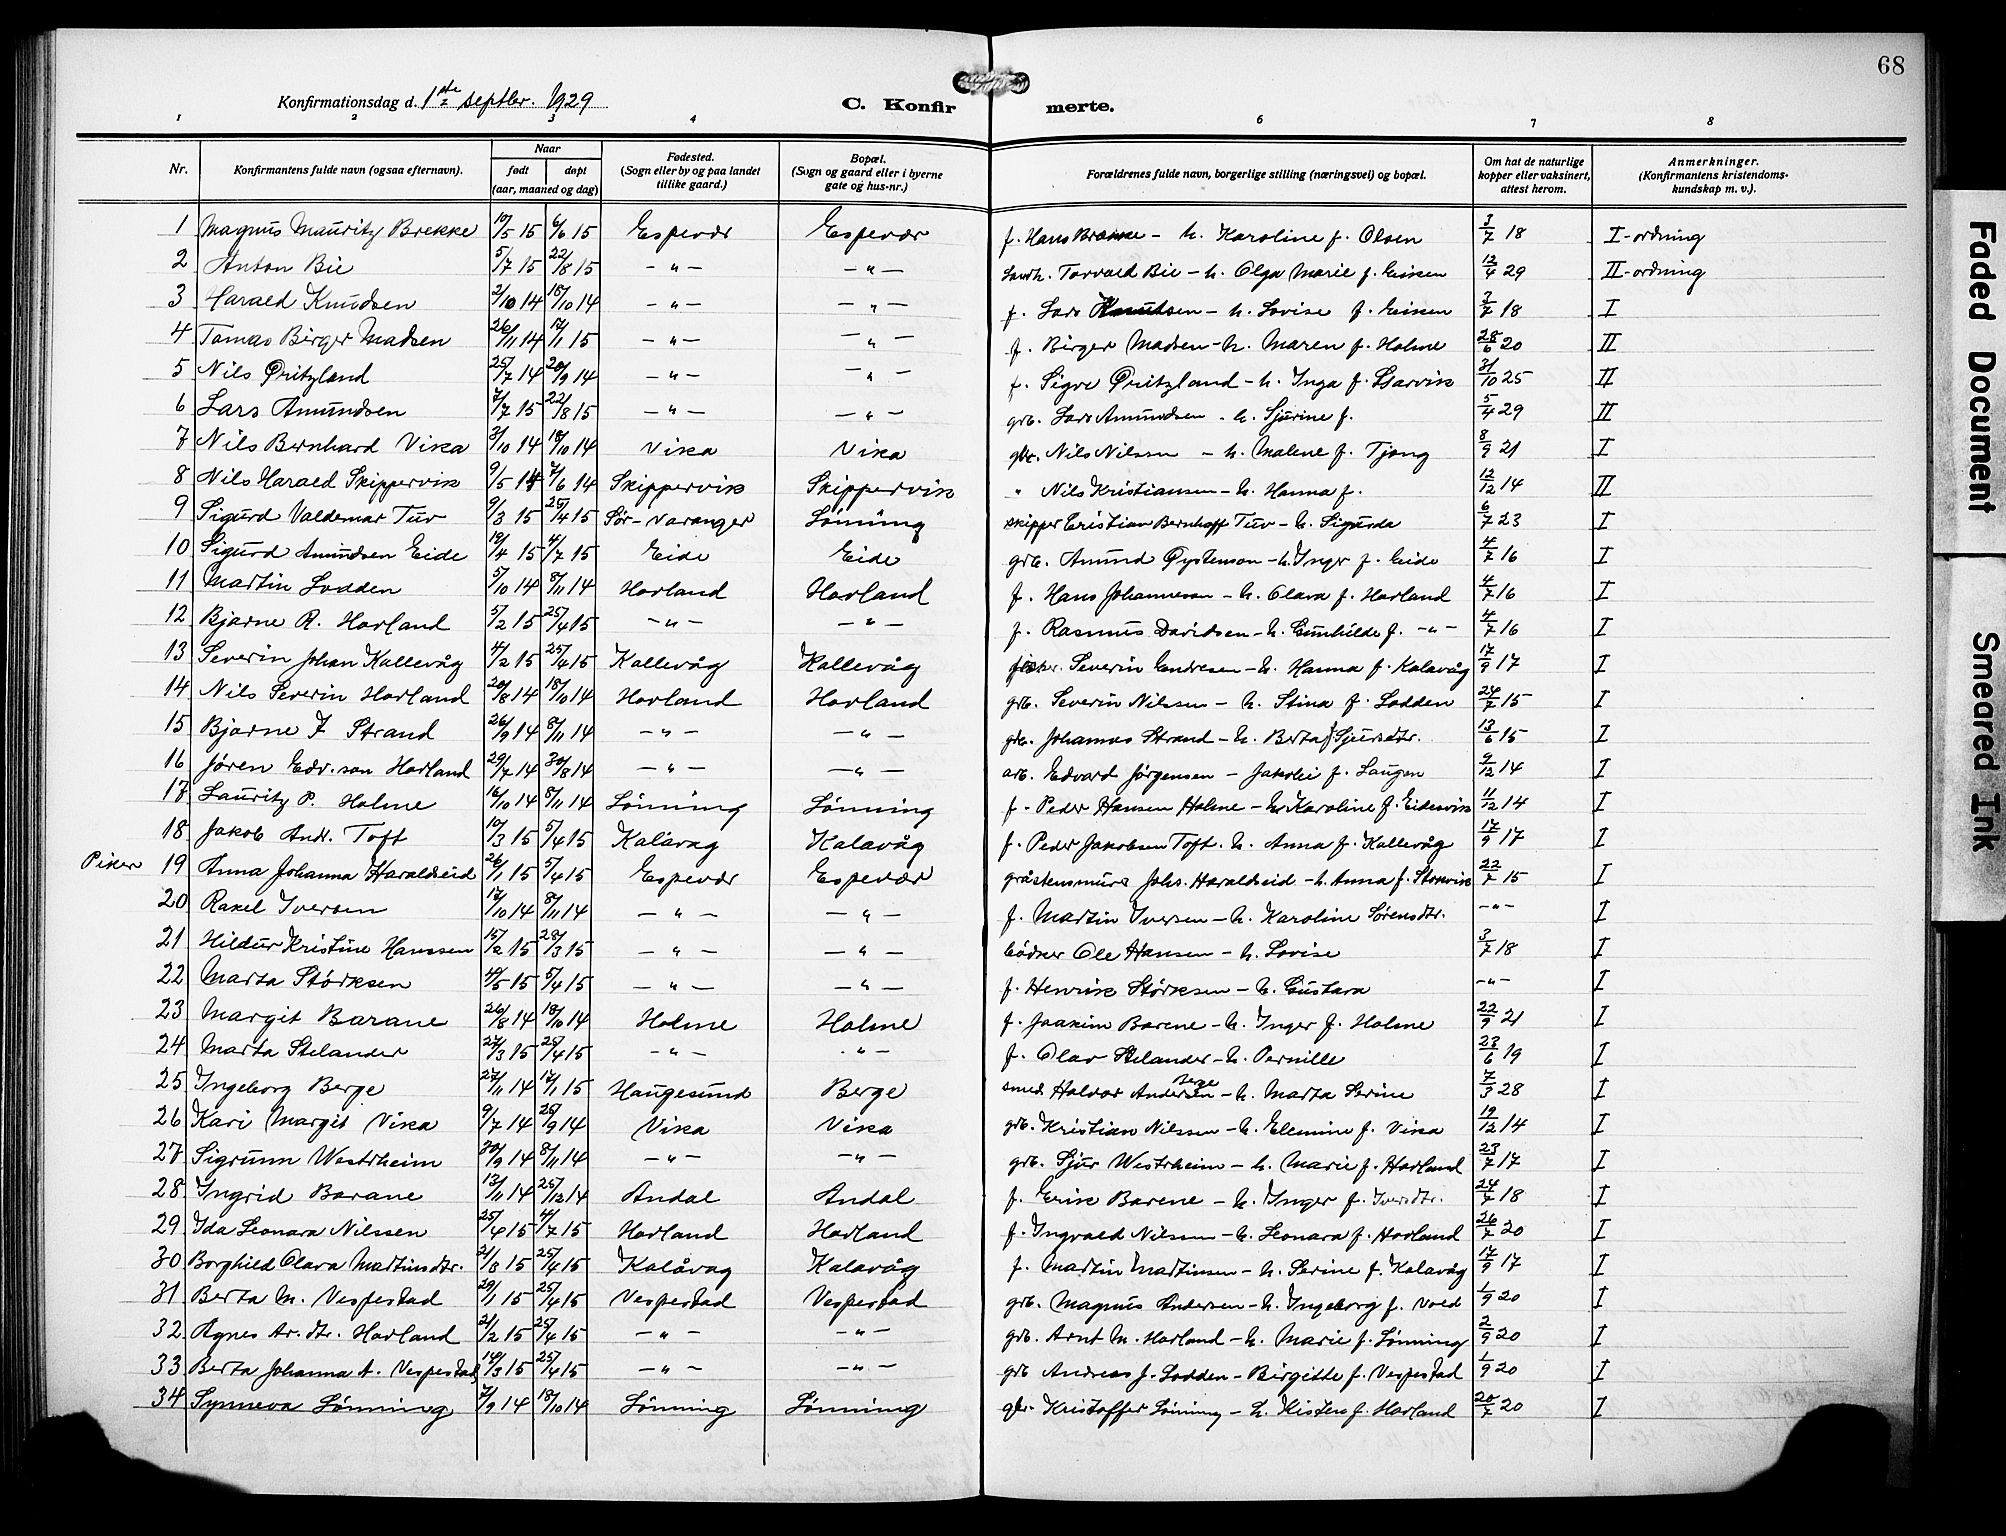 68
Konfirmationsdag d. 1ste septbr. 1929
C. Konfirmerte.
1 2 3 4 5 6 7 8
Nr. Konfirmantens fulde navn (ogsaa efternavn). Naar født døpt (aar, maaned og dag) Fødested. (Sogn eller by og paa landet tillike gaard.) Bopæl. (Sogn og gaard eller i byerne gate og hus-nr.) Forældrenes fulde navn, borgerlige stilling (næringsvei) og bopæl. Om hat de naturlige kopper eller vaksinert, attest herom. Anmerkninger. (Konfirmantens kristendomskundskap m. v.).
1 Magnus Mauritz Brekke 10/5 15 6/6 15 Espevær Espevær f. Hans Brekke - h. Karoline f. Olsen 3/7 18 I-ordning
2 Anton Bie 5/7 15 22/8 15 -"- -"- Landh. Torvald Bie - h. Olga Marie f. Eiken 12/4 29 II-ordning
3 Harald Knudsen 2/10 14 18/10 14 -"- -"- f. Lars Knutsen - h. Lovise f. Eiken 3/7 18 I
4 Tomas Birger Madsen 26/11 14 17/1 15 -"- -"- f. Birger Madsen - h. Maren f. Holme 28/6 20 II
5 Nils Øritzland 25/7 14 20/9 14 -"- -"- f. Sigve Øritzland - h. Inga f. Lærvik 31/10 25 II
6 Lars Amundsen 7/7 15 22/8 15 -"- -"- grb. Lars Amundsen - h. Sjurine f. 5/4 29 II
7 Nils Bernhard Vika 3/10 14 18/10 14 Vika Vika gbr. Nils Nilsen - h. Malene f. Tjong 8/9 21 I
8 Nils Harald Skippervik 9/5 14 7/6 14 Skippervik Skippervik " Nils Kristiansen - h. Hanna f. 12/12 14 II
9 Sigurd Valdemar Tuv 9/3 15 25/4 15 Sør-Varanger Lønning skipper Kristian Bernhoff Tuv - h. Sigurda 6/7 23 I
10 Sigurd Amundsen Eide 19/4 15 4/7 15 Eide Eide grb. Amund Øystenson - h. Inger f. Eide 4/7 16 I
11 Martin Lodden 5/10 14 8/11 14 Hovland Hovland f. Hans Johanneson - h. Olava f. Hovland 4/7 16 I
12 Bjarne R. Hovland 5/2 15 25/4 15 -"- -"- f. Rasmus Davidsen - h. Gunhilde f. -"- 4/7 16 I
13 Severin Johan Kallevåg 4/2 15 25/4 15 Kallevåg Kallevåg fisker. Severin Endresen - h. Hanna f. Kalavåg 17/9 17 I
14 Nils Severin Hovland 20/8 14 18/10 14 Hovland Hovland grb. Severin Nilssen - h. Stina f. Lodden 24/7 15 I
15 Bjarne J Strand 26/9 14 8/11 14 -"- -"- grb. Johannes Strand - h. Berta f Sjursdtr. 13/6 15 I
16 Jøren Edv.son Hovland 29/7 14 30/8 14 -"- -"- arb. Edvard Jørgensen - Jakobe f. Laugen 9/12 14 I
17 Lauritz P. Holme 16/10 14 8/11 14 Lønning Lønning f. Peder Hansen Holme - h. Karoline f. Eidesvik 11/12 14 I
18 Jakob Andr. Toft 10/3 15 5/4 15 Kalavag Kalavåg f. Peder Jakobsen Toft. h. Anna f. Kallevåg 17/9 17 I
Piker 19 Anna Johanna Haraldseid 26/1 15 5/4 15 Espevær Espevær gråstensmurer Johs. Haraldseid - h. Anna f. Storvik 22/7 15 I
20 Rakel Iversen 17/10 14 8/11 14 -"- -"- f. Martin Iversen - h. Karoline Sørensdtr. -"- I
21 Hildur Kristine Hanssen 15/2 15 28/3 15 -"- -"- bødker Ole Hansen - h. Lovise 3/7 18 I
22 Marta Størksen 4/5 15 5/4 15 -"- -"- f. Henrik Størksen - h. Gustava -"- I
23 Margit Barane 26/8 14 18/10 14 Holme Holme f. Joakim Barene - h. Inger f. Holme 22/9 21 I
24 Marta Stelander 27/3 15 25/4 15 -"- -"- f. Olav Stelander - h. Pernille 23/6 19 I
25 Ingeborg Berge 27/11 14 17/1 15 Haugesund Berge smed Haldor Andersen Berge - h. Marta Serine 7/3 28 I
26 Kari Margit Vika 9/7 14 26/9 14 Vika Vika grb. Kristian Nilssen - h. Elemine f. Vika 19/12 14 I
27 Sigrunn Westrheim 30/9 14 8/11 14 -"- -"- grb. Sjur Westrheim - h. Marie f. Hovland 23/7 17 I
28 Ingrid Barane 13/11 14 25/12 14 Andal Andal f. Erik Barene - h. Inger f. Iversdtr. 24/7 18 I
29 Ida Leonara Nilssen 25/4 15 4/7 15 Hovland Hovland f. Ingvald Nilssen - h. Leonara f. Hovland 26/7 20 I
30 Borghild Olava Martinsdtr. 21/8 15 25/4 15 Kalåvag Kalavåg f. Martin Martinsen - h. Serine f. Kalavåg 17/9 17 I
31 Berta M. Vespestad 29/1 15 25/4 15 Vespestad Vespestad grb. Magnus Andersen - h. Ingeborg f. Vold 1/9 20 I
32 Agnes Ar.dtr. Hovland 21/2 15 25/4 15 -"- -"- grb. Arnt M. Hovland - h. Marie f. Lønning 2/9 20 I
33 Berta Johanna A. Vespestad 14/3 15 25/4 15 -"- -"- grb Andreas J. Lodden - Birgitte f. Vespestad 1/9 20 I
34 Synneva Lønning 7/9 14 18/10 14 Lønning Lønning gbr. Kristoffer Lønning - h. Kisten f. Hovland 20/7 20 I
Faded Document
Smeared Ink